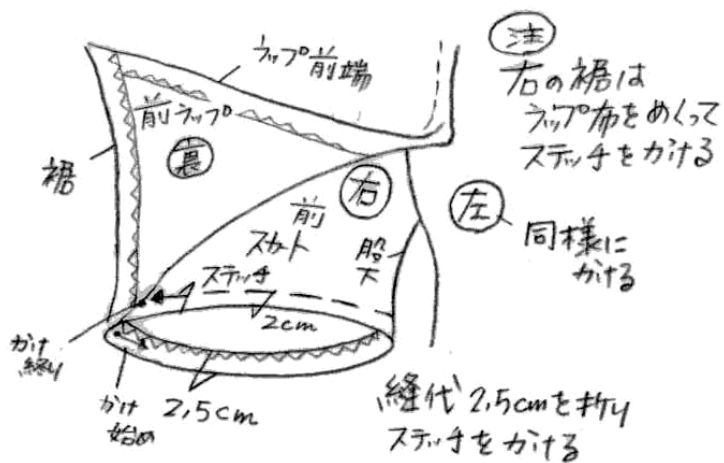 ラップ前端
前ラップ
裏
裾
右
前
スカート
股下
ステッチ
2cm
かけ
終り
かけ
始め
2,5cm
注
右の裾は
ラップ布をめくって
ステッチをかける
左
同様に
かける
縫代2,5cmを折り
ステッチをかける